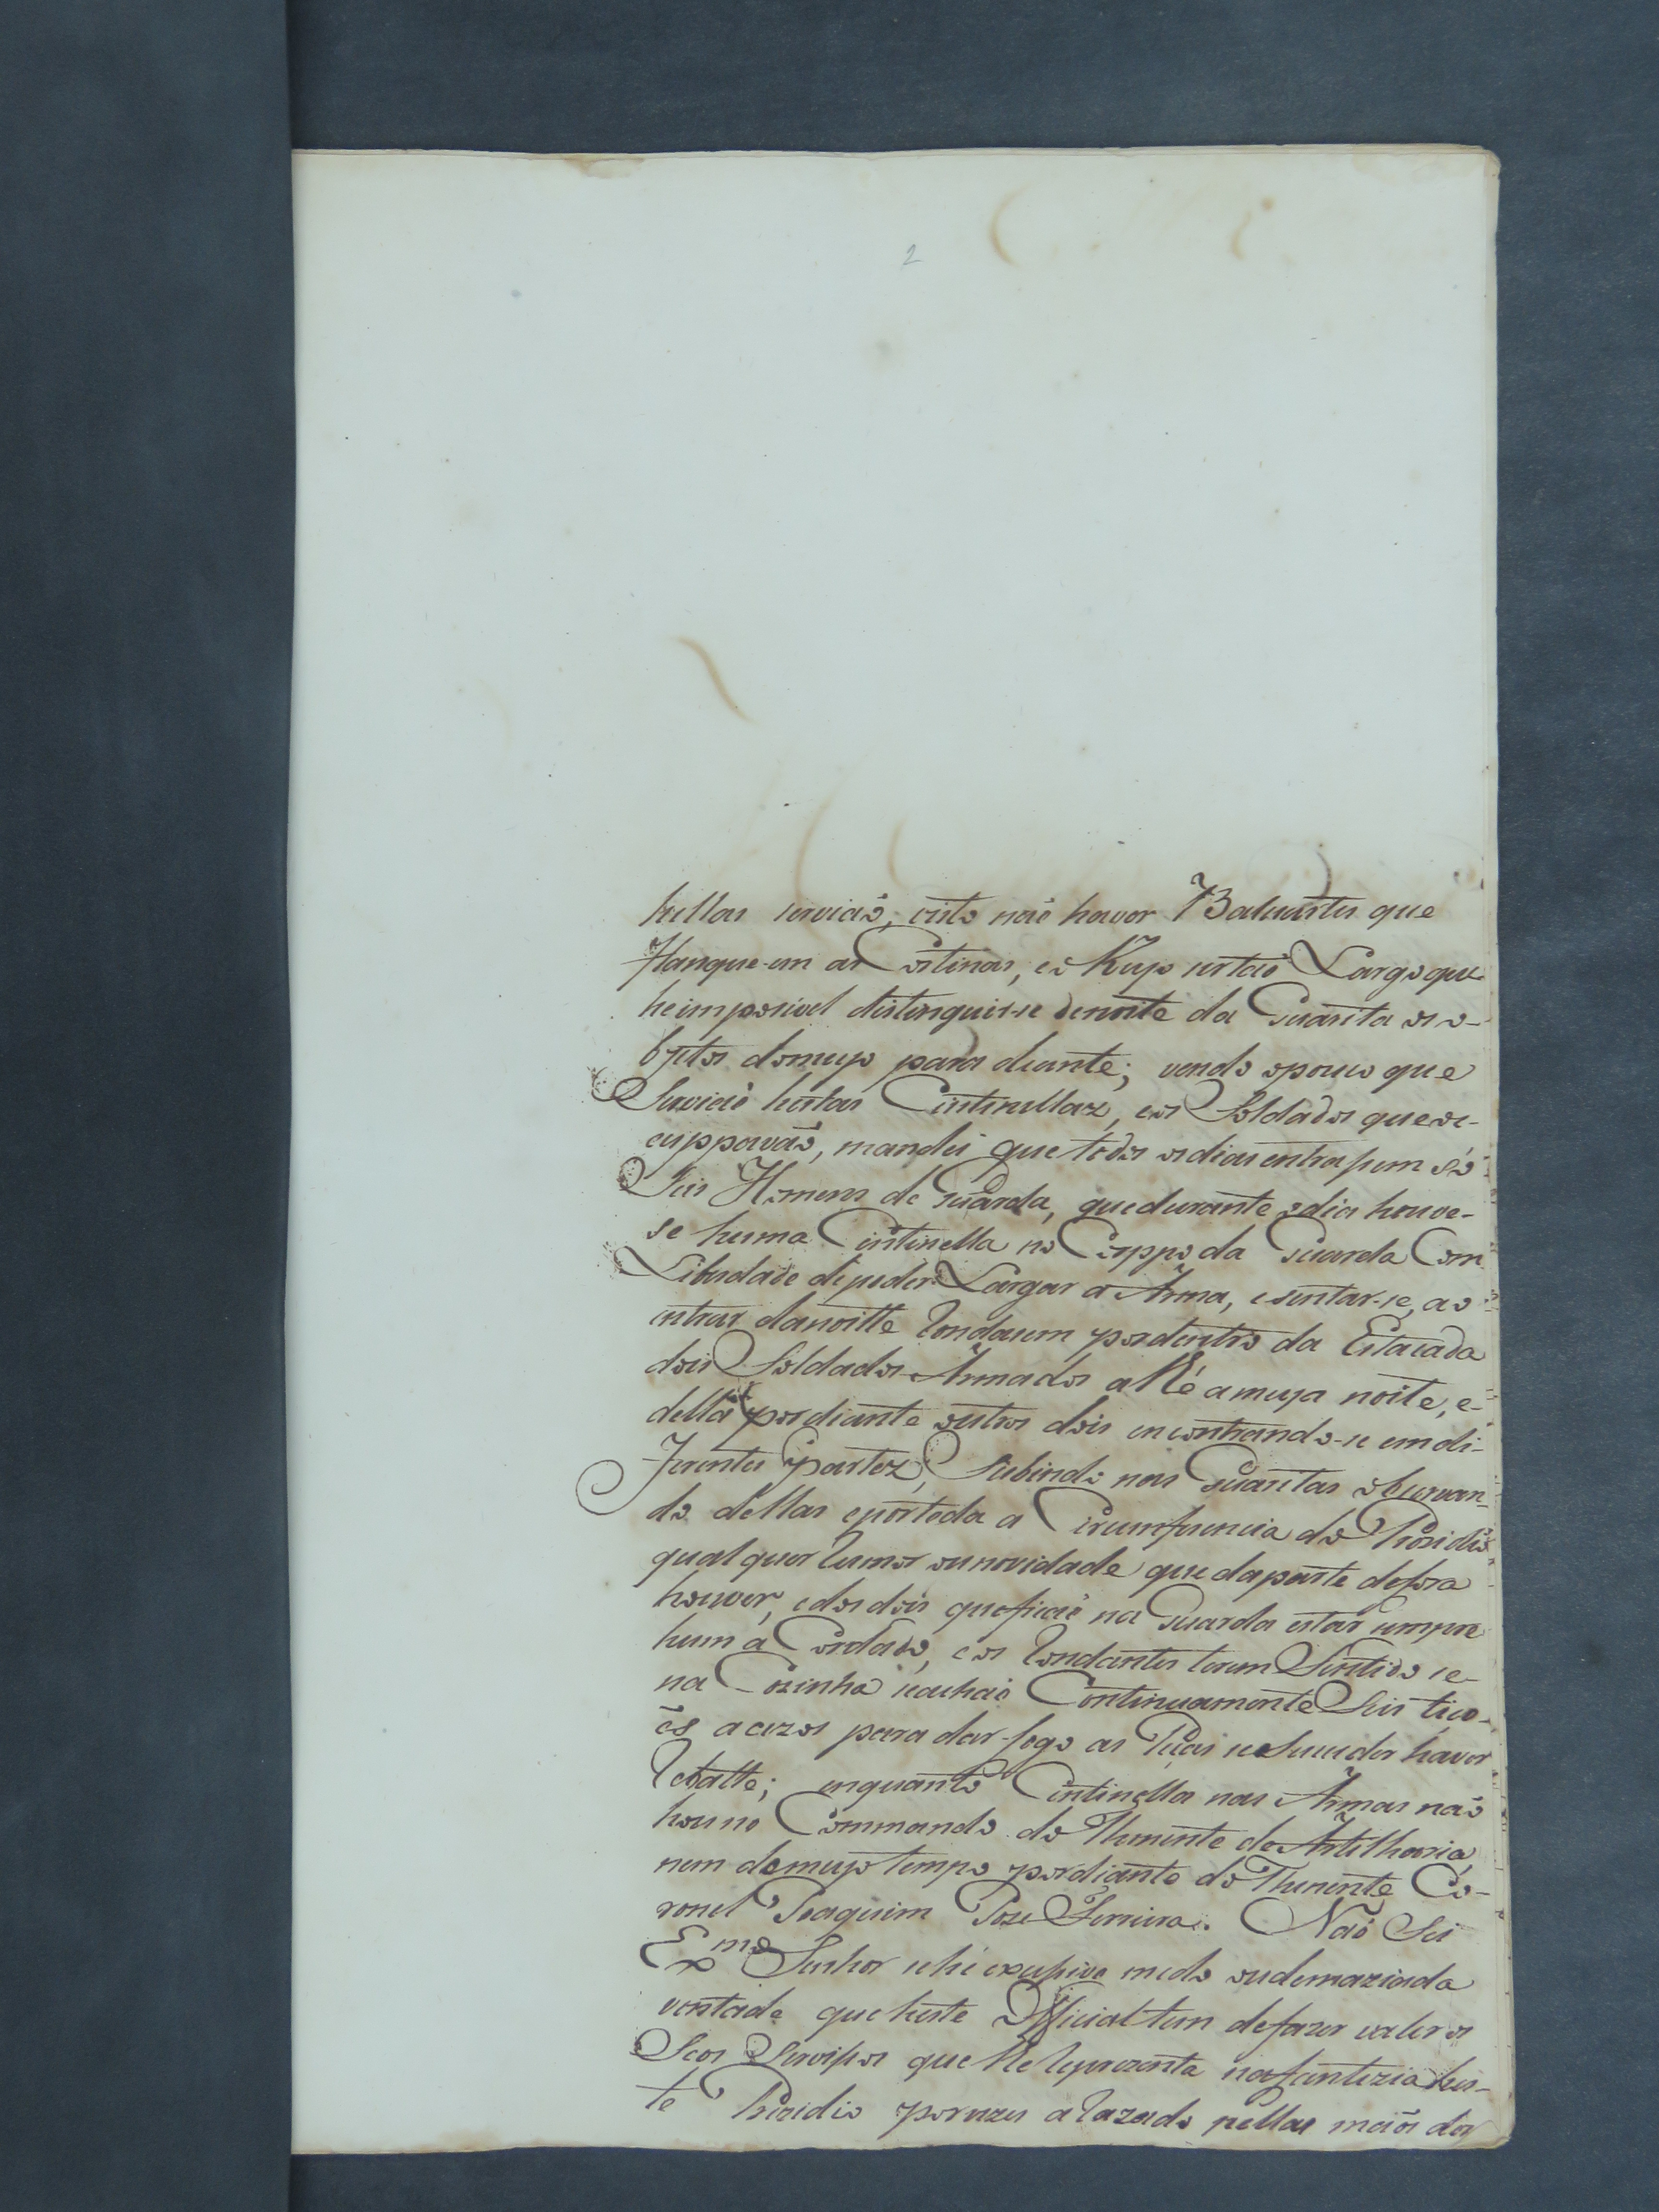 2
hellas serviaõ, visto naõ haver Baluartes que
flanque-em as Cortinas, e o Fuço ser taõ Largo que
he imposivel destinguir-se denoite da Guarita os o-
bjetos domeyo para diante; vendo opouco que
Serviaõ hestas Cintinellaz, e os Soldados que oc-
cuppavaõ, mandei que todos os dias entrassem só
Seis Homens de Guarda, que durante o dia houve-
se huma Cintinella no Corppo da Guarda Com
Liberdade de poder Largar a Arma, e sentar-se, ao
entrar danoitte Rondarem por dentro da Estacada
dois Soldados Armados athé a meya noite, e-
della por diante outros dois encontrando-se em di-
ferentes partez, Subindo nas Guaritas observan-
do dellas e por toda a Circumferencia do Prezidio
qual quer Rumor ou novidade que da parte defora
houver, e dos dois que ficaõ na Guarda estar sempre
hum a Cordado, e os Rondantes terem Sentido se-
na Cozinha se achaõ Continuamente Seis tico-
ẽs acezos para dar fogo as Peças se Suceder haver
Rebatte; enquanto Cintinella nas Armas naõ
houve no Commando do Thenente de Artilharia,
nem do meyo tempo por diante do Thenente Co-
ronel Joaquim Joze Ferreira. Naõ Sei
Exmo Senhor se hé excessivo medo ou demaziada
vontade que heste Official tem defazer valer os
Seos Servissos que lhe Reprezenta na fantezia hes-
te Prezidio por vezes a Razado pellas maõs dos